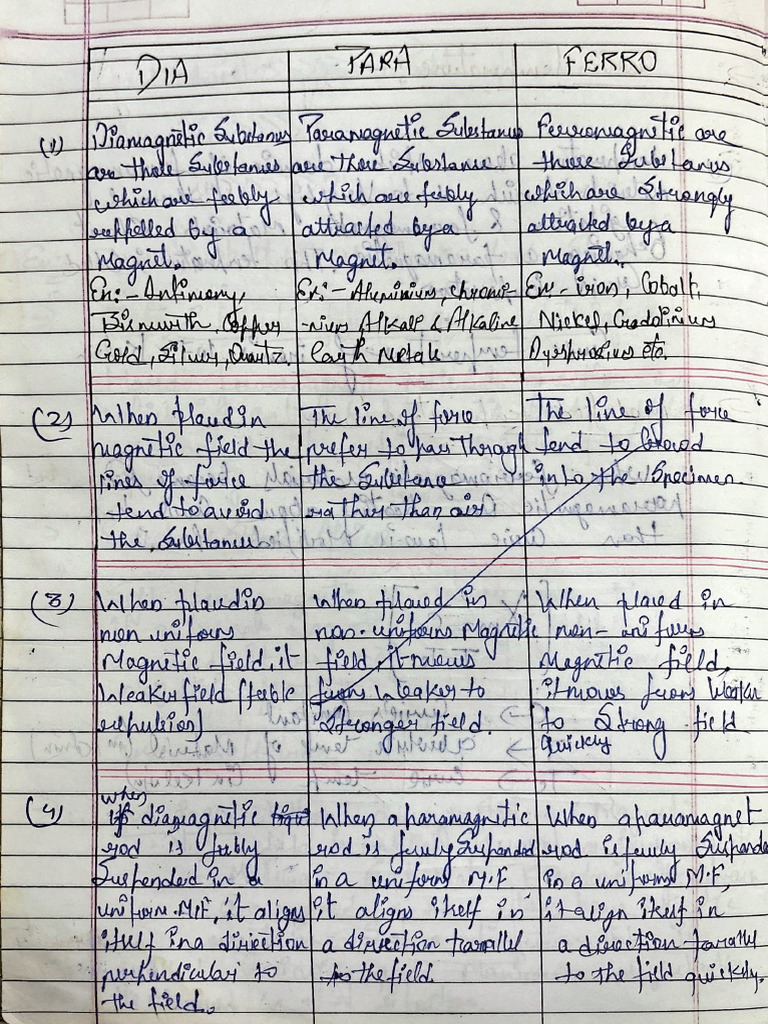 DIA
PARA
FERRO
(1)
Diamagnetic Substances
are those Substances
which are feebly
reppelled by a
Magnet.
Ex:- Antimony,
Bismuth, Copper
Gold, Silver, Quartz.
Paramagnetic Substances
are those Substance
which are febly
attracted by a
Magnet.
Ex:- Aluminium, chromi-
nium Alkali & Alkaline
Earth metals
Ferromagnetic are
those Substances
which are Strongly
attracted by a
Magnet.
Ex- iron, Cobolt,
Nickel, Gadolinium
Dysprosium etc.
(2)
When placed in
magnetic field the
lines of force
tend to avoid
the Substances
The line of force
prefer to pass through
the Substance
rather than air
The line of force
tend to crowd
into the Specimen
(3)
When placed in
non uniform
Magnetic field, it
Weaker field (feeble
repulsion)
When placed in
non-uniform Magnetic
field, it moves
from weaker to
Stronger field.
When placed in
non-uniform
Magnetic field,
it moves from Weaker
to Strong field
Quickly
(4)
when
diamagnetic
rod is febly
Suspended in a
uniform M.F, it aligns
itself in a direction
perpendicular to
the field.
When a paramagnetic
rod is freely Suspended
in a uniform M.F
it aligns itself in
a direction parallel
to the field.
When a paramagnet
rod is freely Suspende
in a uniform M.F,
it align itself in
a direction parallel
to the field quickly.